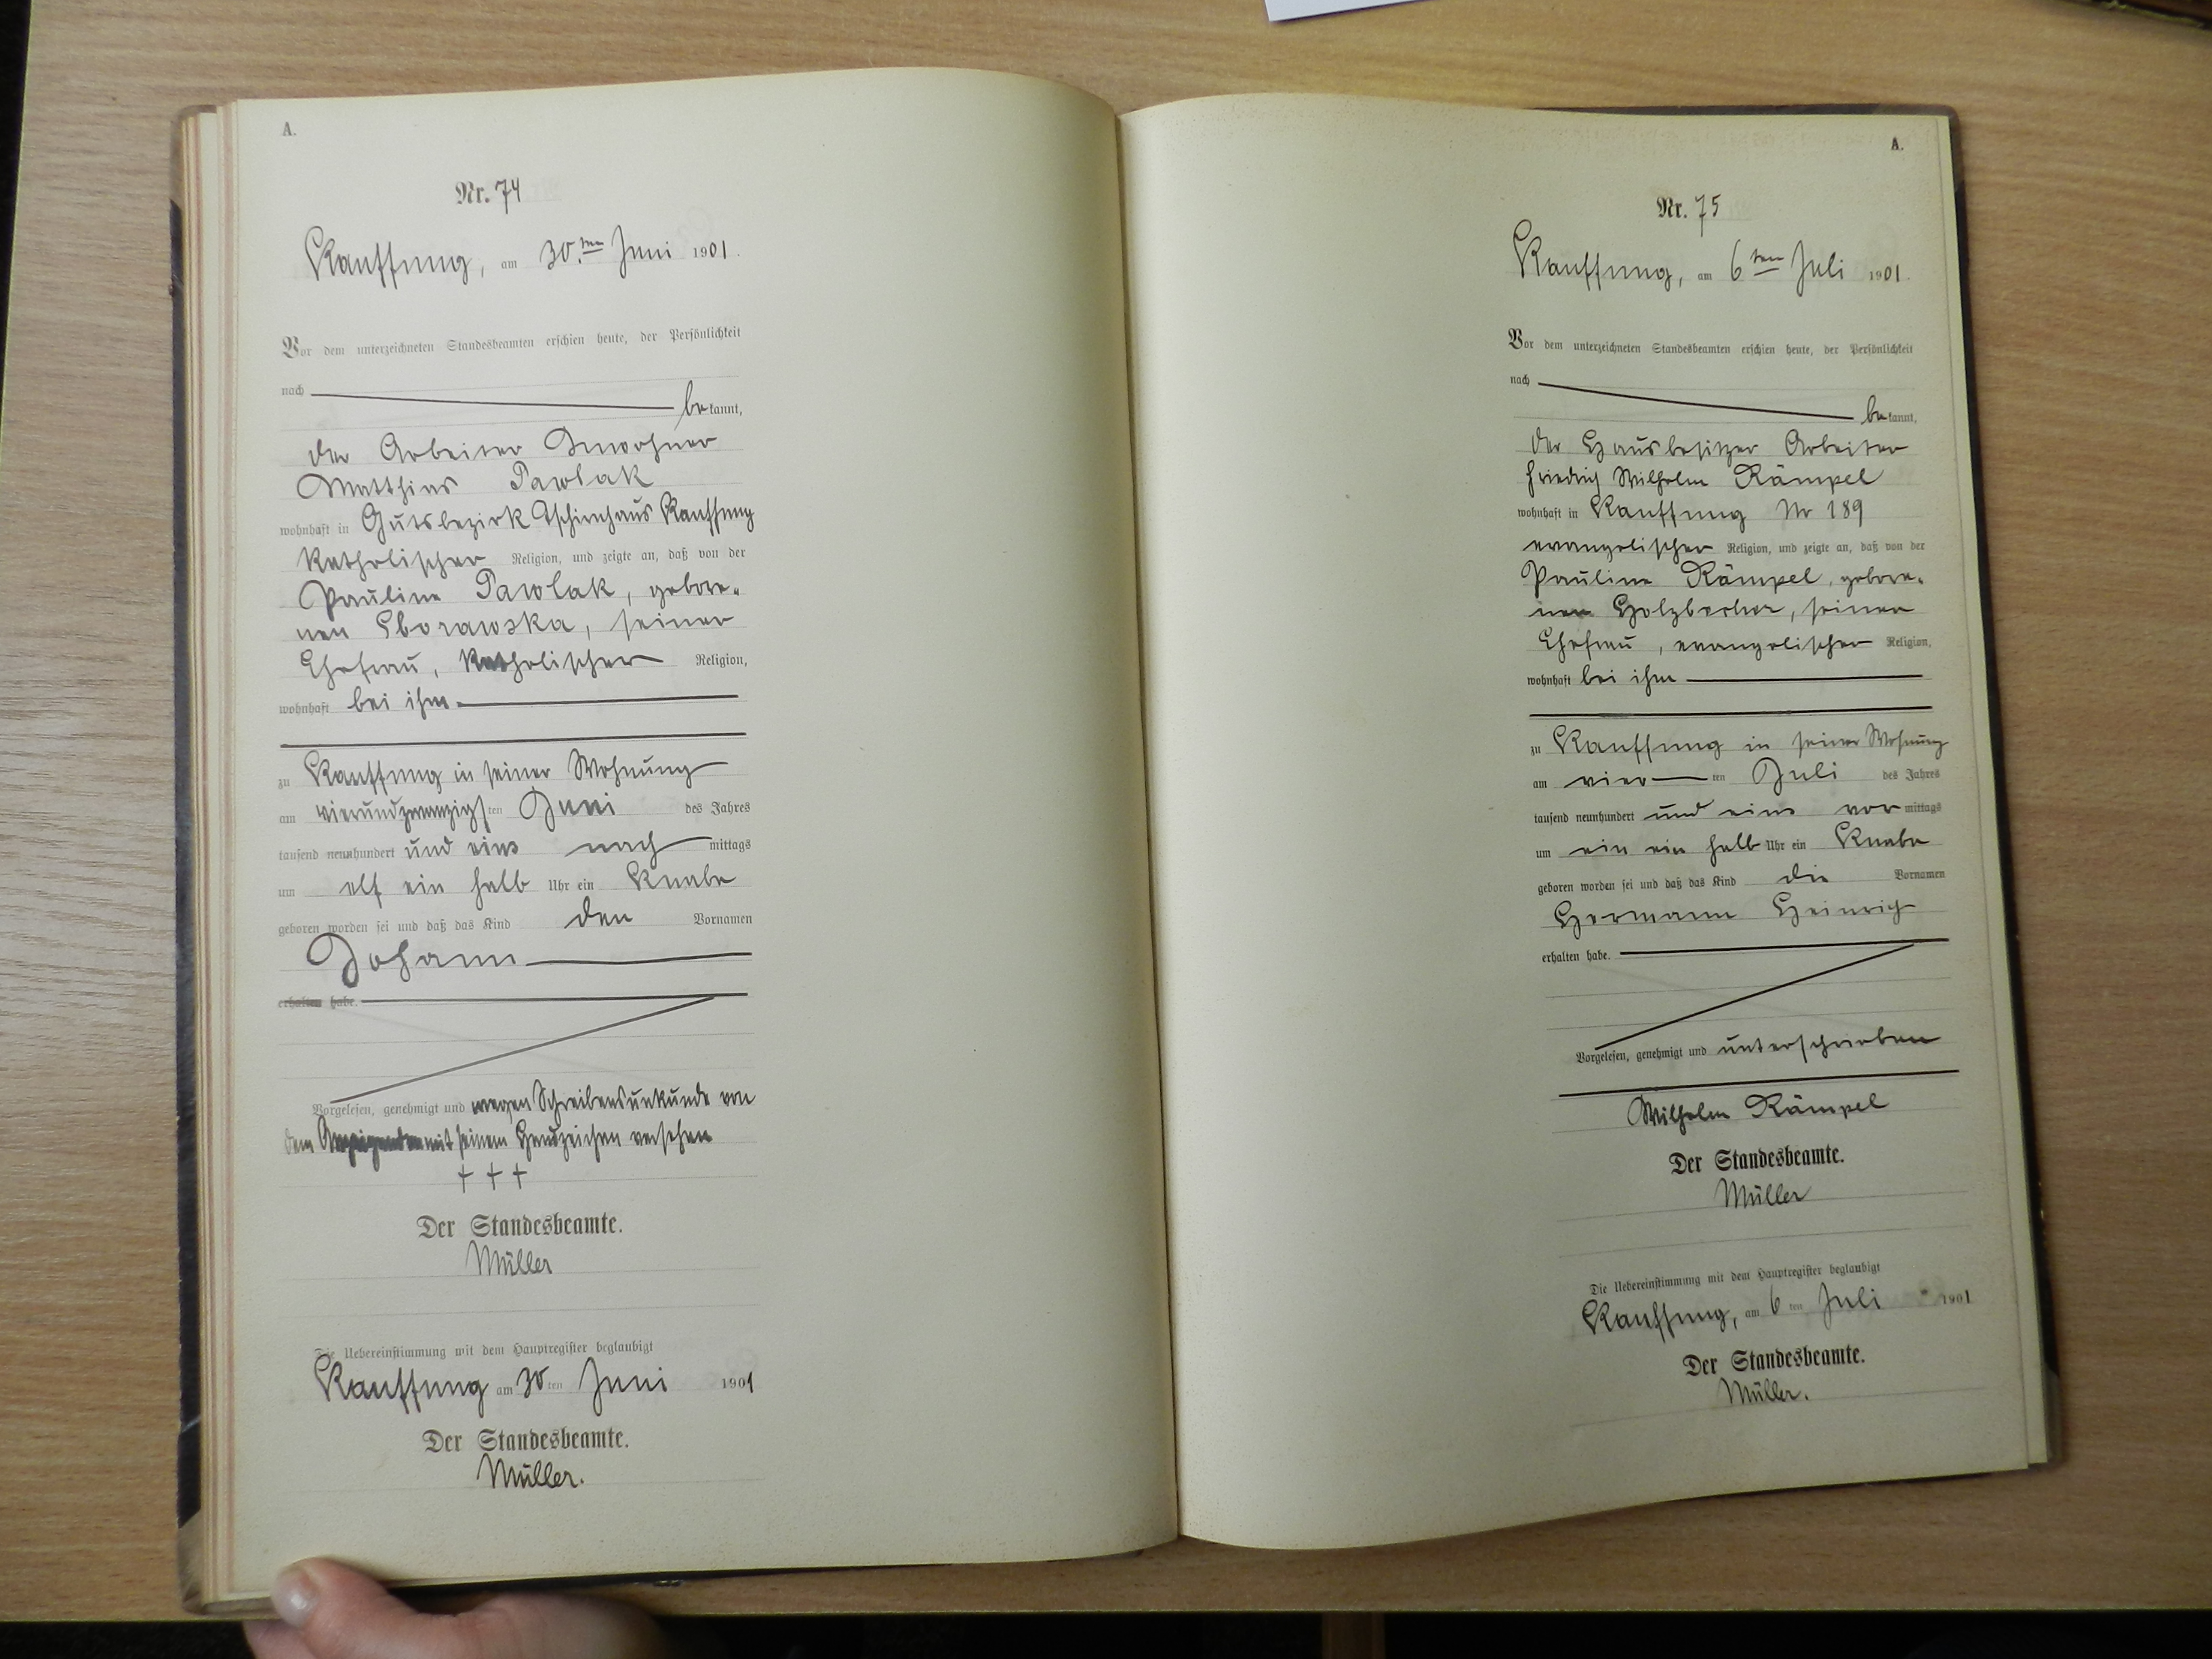 A.
Nr. 74
Kauffung, am 30.ten Juni 1901.
Vor dem unterzeichneten Standesbeamten erschien heute, der Persönlichkeit
nach
bekannt,
der Arbeiter Inwohner
Matthias Pawlak
wohnhaft in Gutsbezirk Tschirnhaus Kauffung
katholischer Religion, und zeigte an, daß von der
Pauline Pawlak, gebore-
nen Sborawska, seiner
Ehefrau, katholischer Religion,
wohnhaft bei ihm
zu Kauffung in seiner Wohnung
am vierundzwanzigsten Juni des Jahres
tausend neunhundert und eins nachmittags
um elf ein halb Uhr ein Knabe
geboren worden sei und daß das Kind den Vornamen
Johann
erhalten habe.
Vorgelesen, genehmigt und wegen Schreibensunkunde von
dem Anzeigenden mit seinem Handzeichen versehen
† † †
Der Standesbeamte.
Müller
Die Uebereinstimmung mit dem Hauptregister beglaubigt
Kauffung am 30ten Juni 1901
Der Standesbeamte.
Müller.
A.
Nr. 75
Kauffung, am 6ten Juli 1901.
Vor dem unterzeichneten Standesbeamten erschien heute, der Persönlichkeit
nach
bekannt,
der Hausbesitzer Arbeiter
Friedrich Wilhelm Rämpel
wohnhaft in Kauffung Nr 189
evangelischer Religion, und zeigte an, daß von der
Pauline Rämpel, gebore-
nen Holzbecher, seiner
Ehefrau, evangelischer Religion,
wohnhaft bei ihm
zu Kauffung in seiner Wohnung
am vierten Juli des Jahres
tausend neunhundert und eins vormittags
um ein ein halb Uhr ein Knabe
geboren worden sei und daß das Kind die Vornamen
Hermann Heinrich
erhalten habe.
Vorgelesen, genehmigt und unterschrieben
Wilhelm Rämpel
Der Standesbeamte.
Müller
Die Uebereinstimmung mit dem Hauptregister beglaubigt
Kauffung, am 6ten Juli 1901
Der Standesbeamte.
Müller.